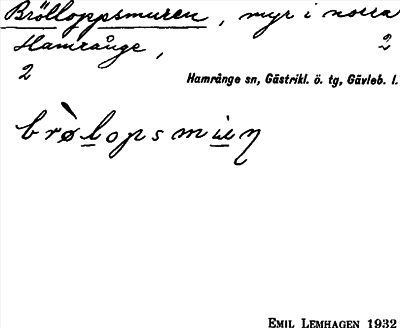 Brölloppsmuren, myr i norra
Hamrånge,
2
2
Hamrånge sn, Gästrikl. ö. tg, Gävleb. l.
brø̀lopsmùṇ
EMIL LEMHAGEN 1932